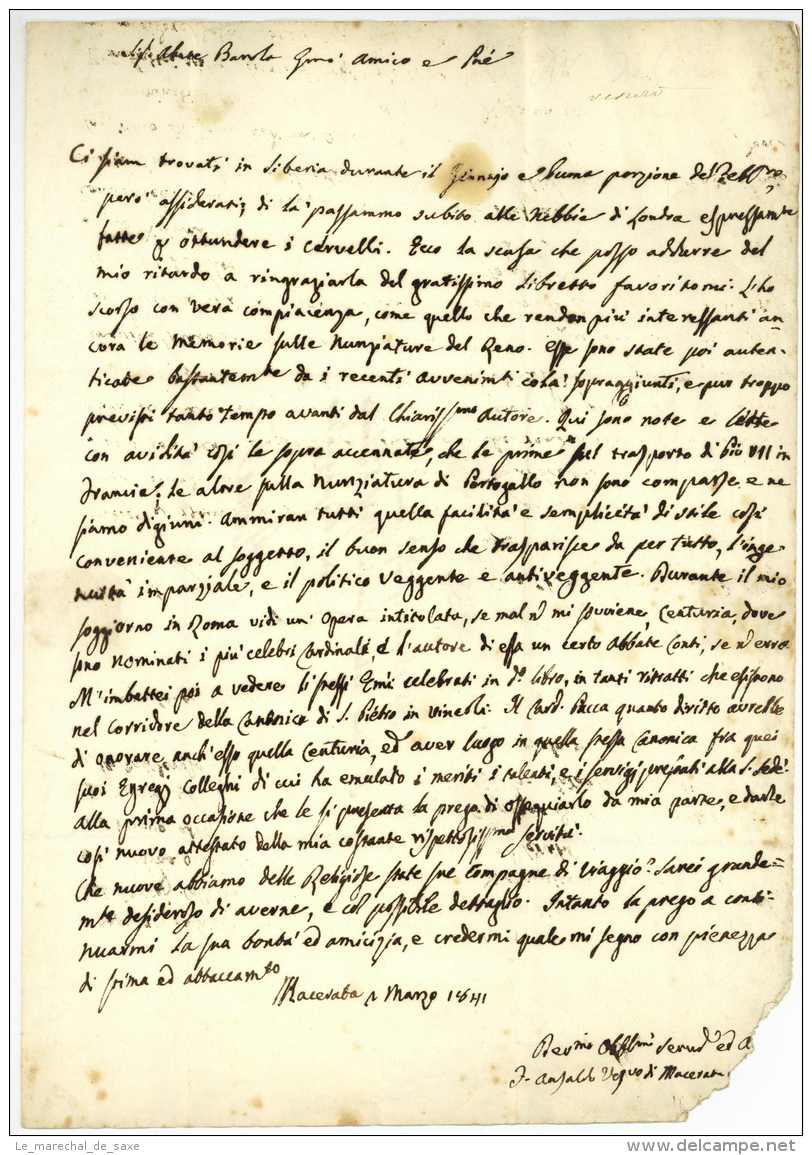 Abate Barola Amico e
Ci siam trovati in Siberia durante il Gennajo e buona porzione del Febb.ro
pero' assiderati; di là passammo subito alle Nebbie di Londra espressam.te
fatte p ottundere i cervelli. Ecco la scusa che posso addurre del
mio ritardo a ringraziarla del gratissimo libretto favoritomi. L'ho
scorso con vera compiacenza, come quello che rendon più interessanti an
cora le Memorie sulle Nunziature del Reno. Esse sono state poi auten-
ticate bastantem.te da i recenti avvenim.ti colà sopraggiunti, e pur troppo
previsti tanto tempo avanti dal Chiariss.mo Autore. Qui sono note e lette
con avidità così le sopra accennate, che le prime sul trasporto di Pio VII in
Francia; le altre sulla Nunziatura di Portogallo non sono comparse e ne
siamo digiuni. Ammiran tutti quella facilità e semplicità di stile così
conveniente al soggetto, il buon senso che trasparisce da per tutto, l'inge
nuità imparziale, e il politico veggente e antiveggente. Durante il mio
soggiorno in Roma vidi un' opera intitolata, se mal n mi souviene, Centuria, dove
sono nominati i più celebri Cardinali, è l'autore di essa un certo Abbate Conti, se n erro
M'imbattei poi a vedere li stessi Emi celebrati in d.o libro, in tanti ritratti che esistono
nel corridore della Canonica di S. Pietro in Vincoli. Il Card. Pacca quanto diritto avrebbe
di onorare anch'esso quella Centuria, ed aver luogo in quella stessa Canonica fra quei
suoi Egregj Colleghi di cui ha emulato i meriti i talenti, e i servigi prestati alla S. Sede.
Alla prima occasione che le si presenta la prego di ossequiarlo da mia parte, e darle
così nuovo attestato della mia costante rispettosissima servitù.
Che nuove abbiamo delle Religiose state sue Compagne di Viaggio? Sarei grande=
m.te desideroso di averne, e col possibile dettaglio. Intanto la prego a conti-
nuarmi la sua bontà ed amicizia, e credermi quale mi segno con pienezza
di stima ed attaccam.to
Macerata 1 Marzo 1841
Dev.mo Obbl.mo Serv. ed A
F. Ansaldo Vesvo di Macerata
Le_marechal_de_saxe
delcampe.net